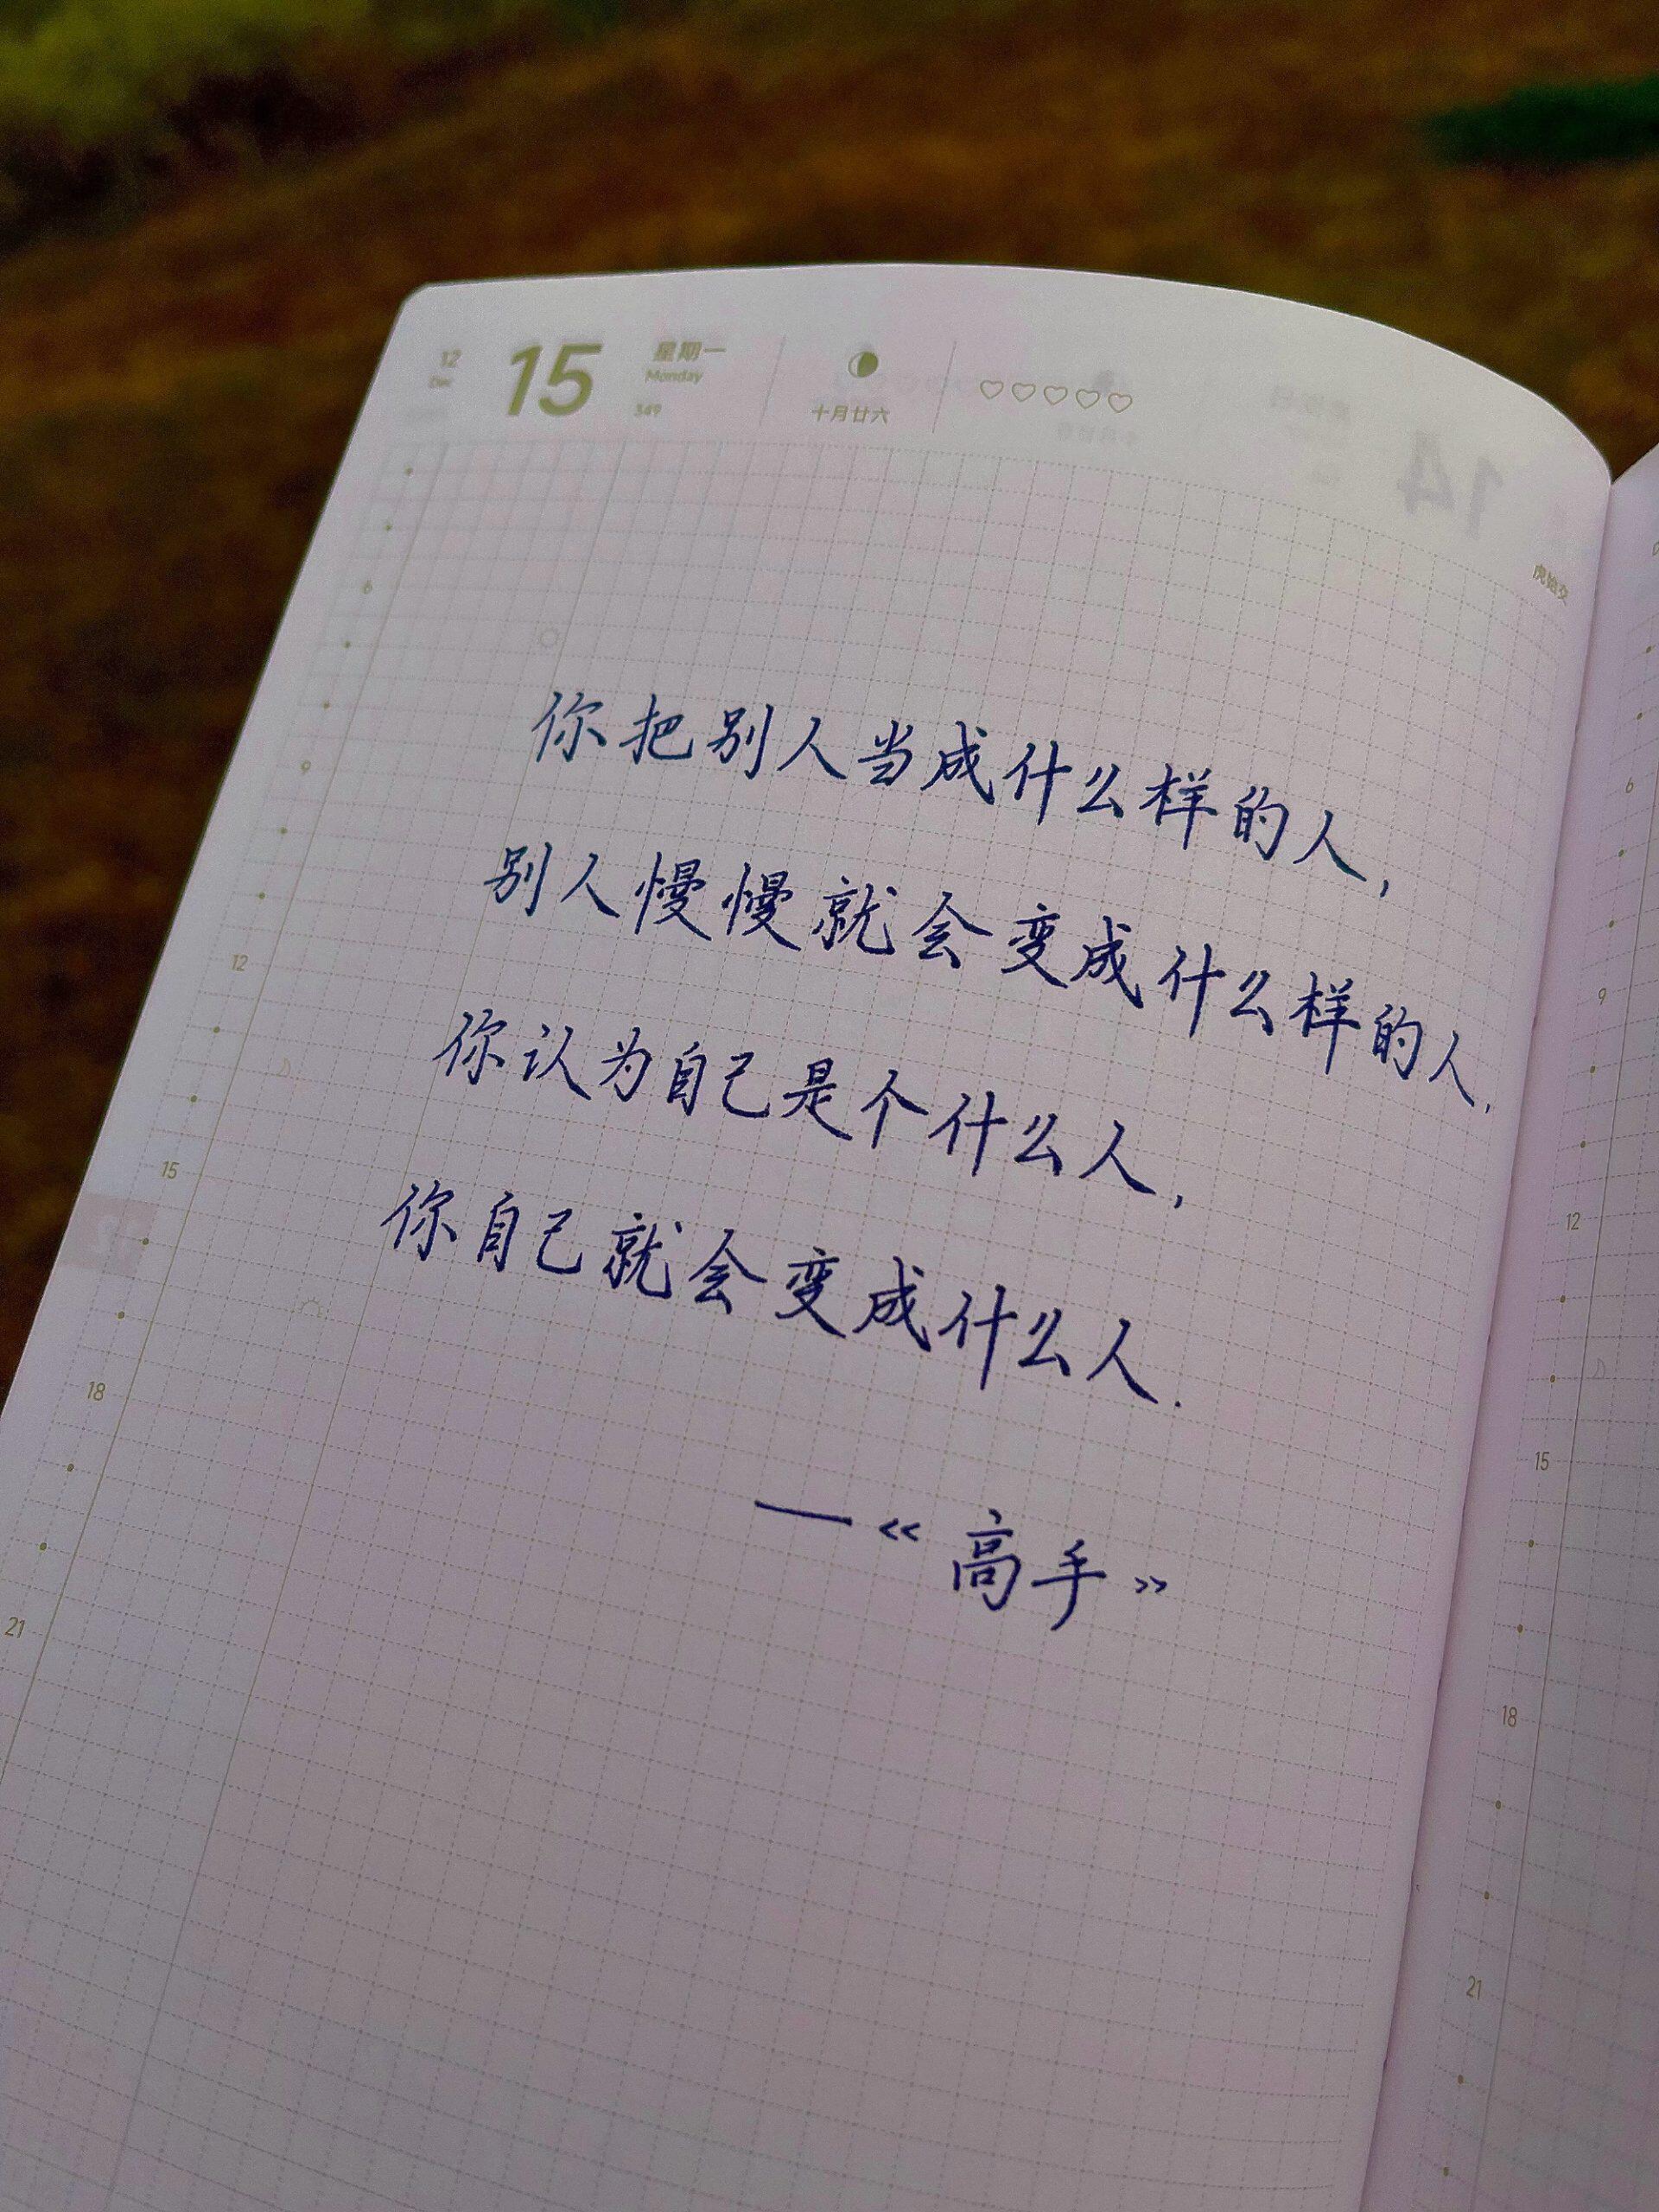 12 15 星期一
Dec Monday
349 十月廿六
14
虎始交
你把别人当成什么样的人,
别人慢慢就会变成什么样的人,
你认为自己是个什么人,
你自己就会变成什么人.
—《高手》
6
9
12
15
18
21
6
9
12
15
18
21